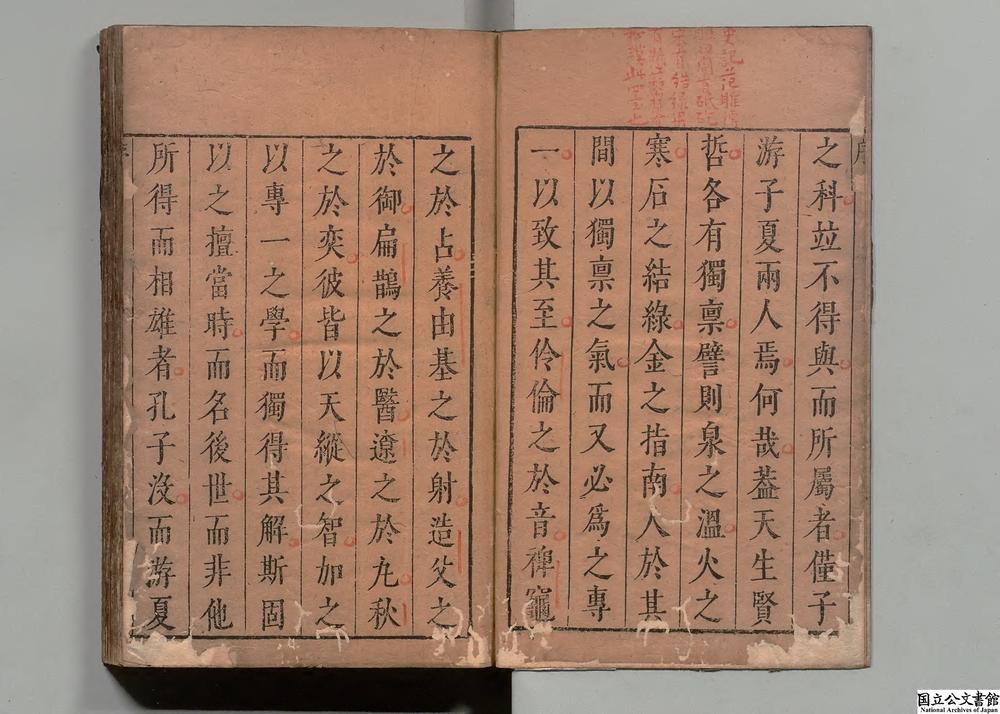 序
之科竝不得與而所屬者僅子
游子夏兩人焉何哉蓋天生賢
哲各有獨禀譬則泉之溫火之
寒石之結綠金之指南人於其
間以獨禀之氣而又必爲之專
一以致其至伶倫之於音裨竈
之於占養由基之於射造父之
於御扁鵲之於醫遼之於九秋
之於奕彼皆以天縱之智加之
以專一之學而獨得其解斯固
以之擅當時而名後世而非他
所得而相雄者孔子沒而游夏
国立公文書館
National Archives of Japan